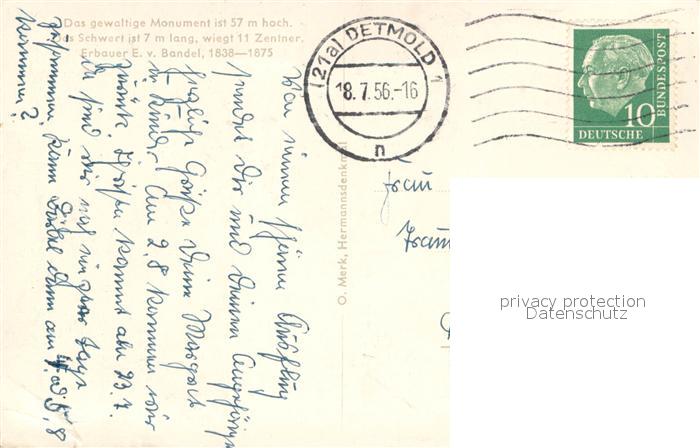 Das gewaltige Monument ist 57 m hoch.
Das Schwert ist 7 m lang, wiegt 11 Zentner.
Erbauer E. v. Bandel, 1838—1875
(21a) DETMOLD 1
18.7.56.-16
n
10
DEUTSCHE
BUNDESPOST
O. Merk, Hermannsdenkmal
Frau
Von einem schönen Ausflug
sendet Dir und Deinen Angehörigen
herzliche Grüße Deine Margret
u. Kinder. Am 2.8 kommen wir
zurück. kommt am 23.7.
da sind wir noch ein paar Tage
zusammen. Kann dann am 4. od 5.8
kommen?
privacy protection
Datenschutz